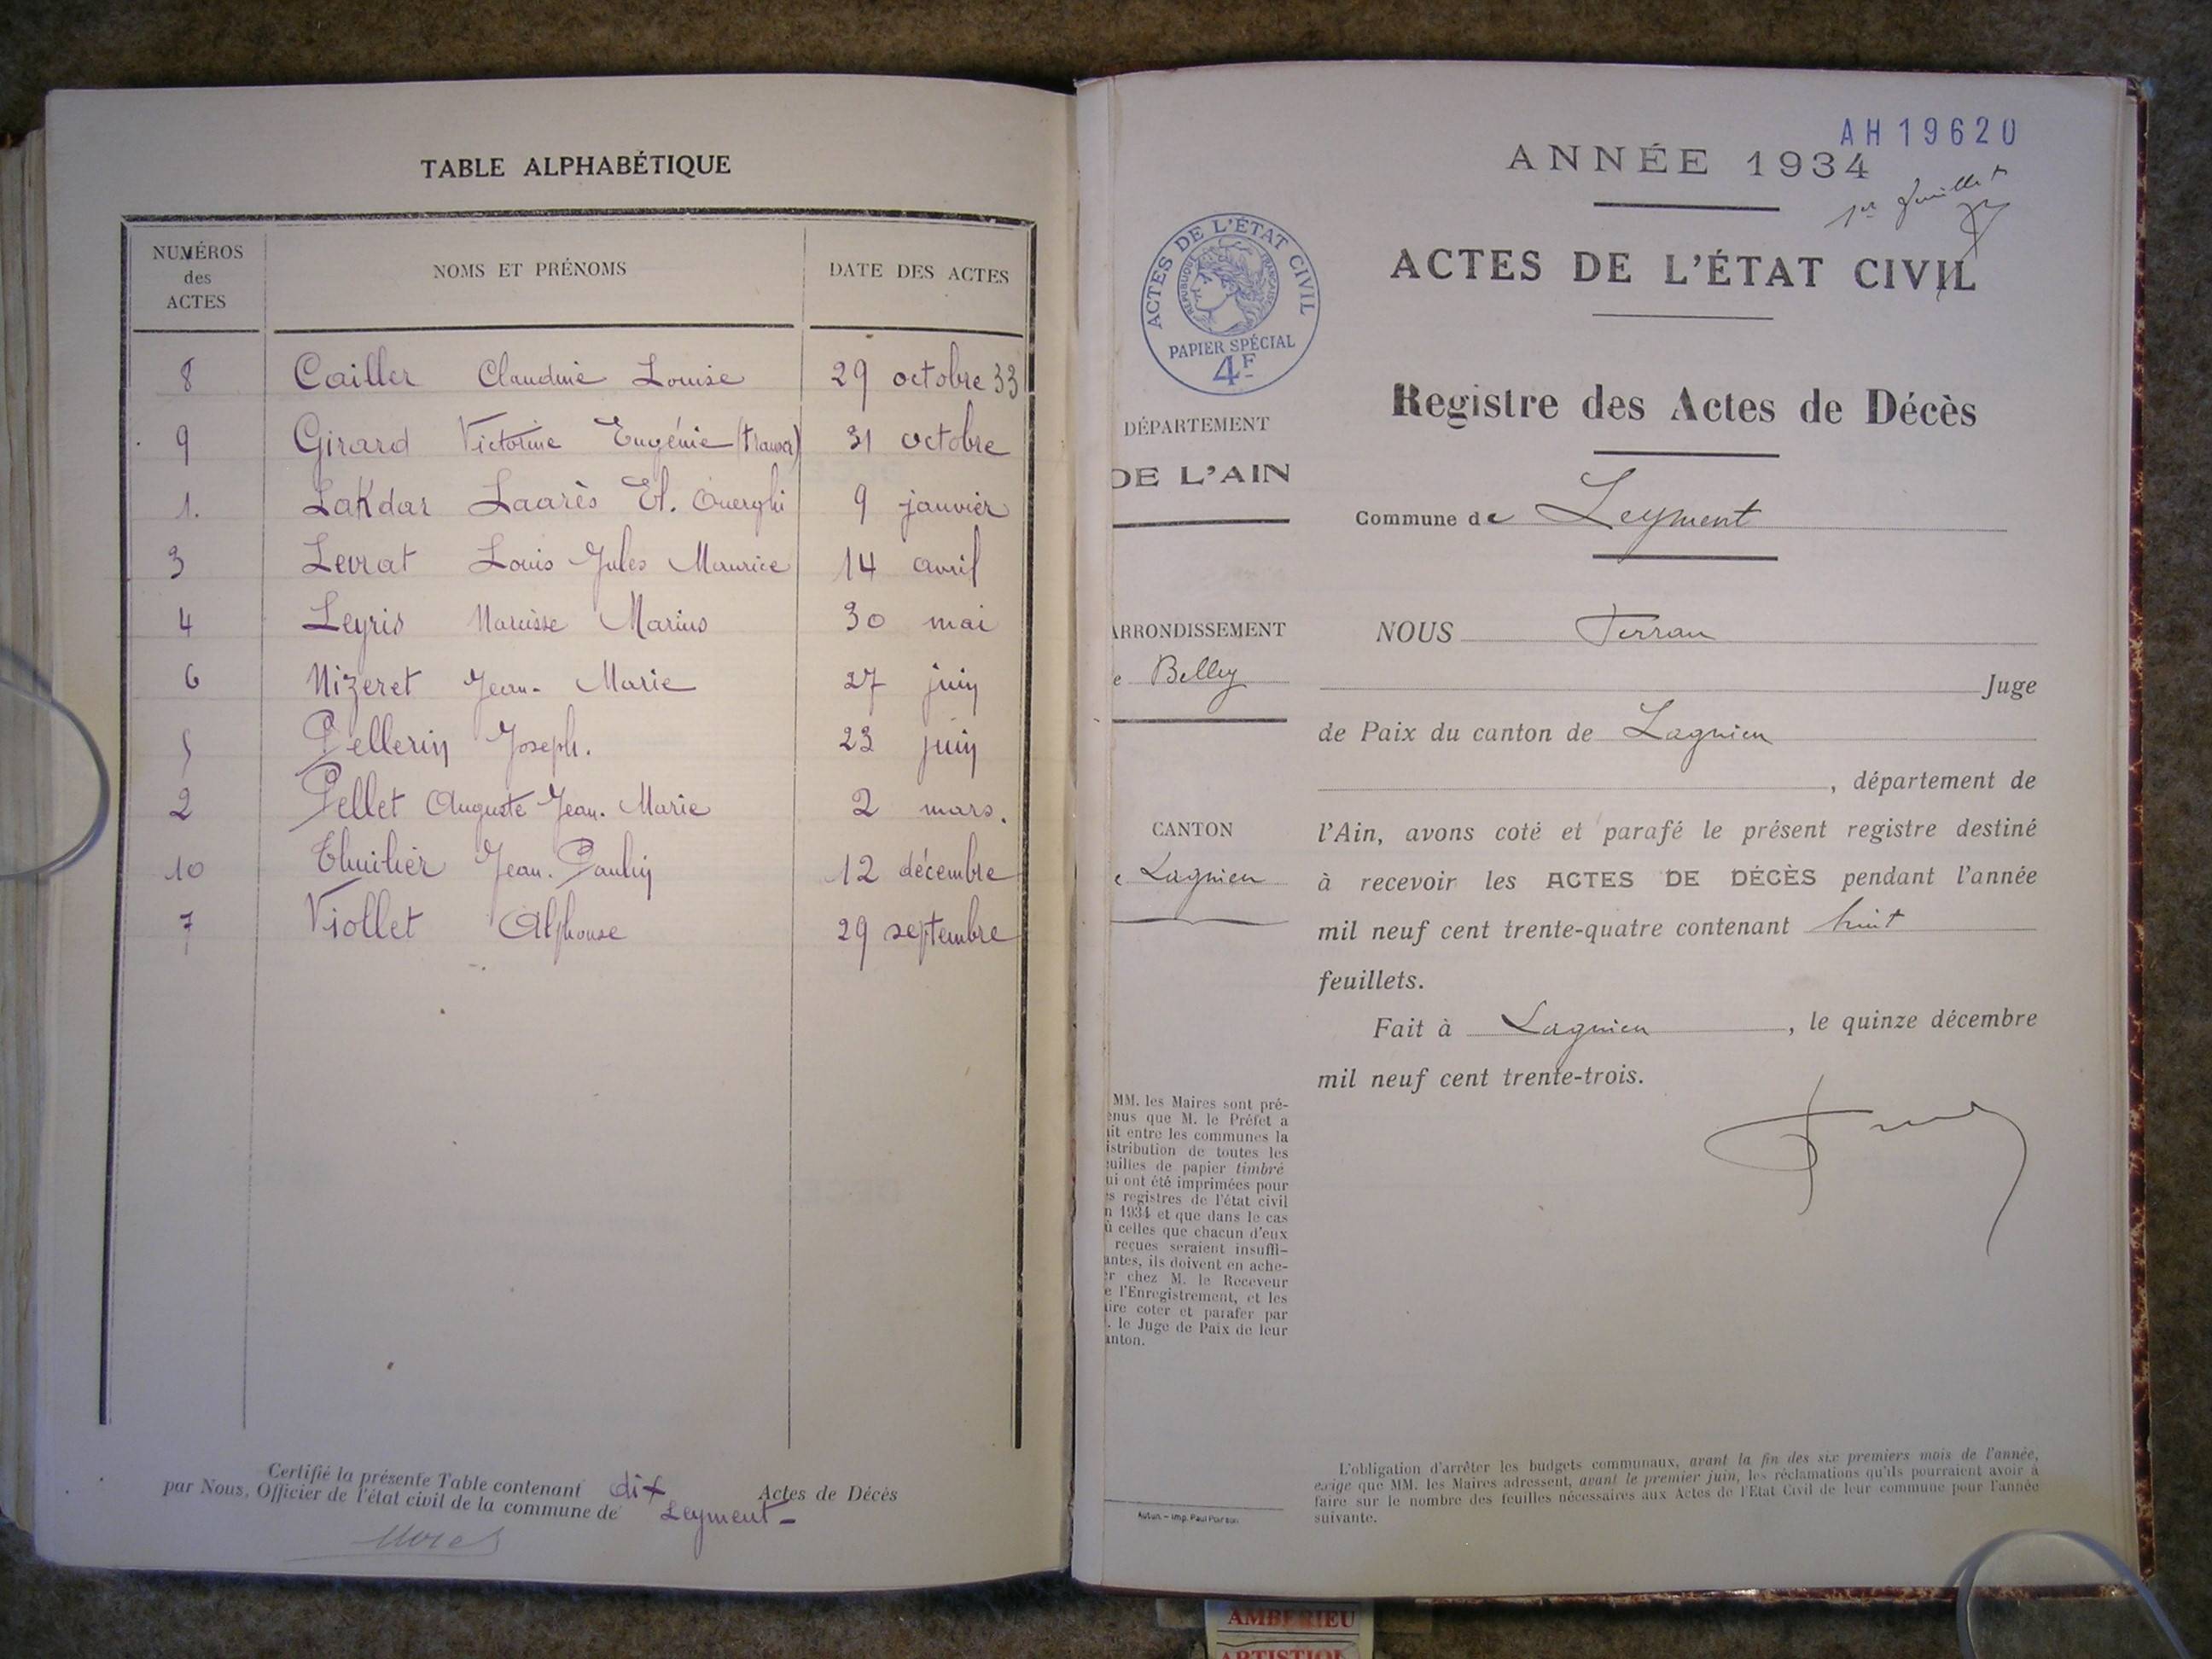 TABLE ALPHABÉTIQUE
NUMÉROS
des
ACTES
NOMS ET PRÉNOMS
DATE DES ACTES
8 Cailler Claudine Louise 29 octobre 33
9 Girard Victorine Eugénie 31 octobre
1. Lakdar Laarès El. Ouerghi 9 janvier
3 Levrat Louis Jules Maurice 14 avril
4 Leyris Narcisse Marius 30 mai
6 Nizeret Jean-Marie 27 juin
5 Pellerin Joseph. 23 juin
2 Pellet Auguste Jean-Marie 2 mars.
10 Thuilier Jean-Paulin 12 décembre
7 Viollet Alphonse 29 septembre
Certifié la présente Table contenant dix Actes de Décès
par Nous, Officier de l'état civil de la commune de Leyment-
AH19620
ANNÉE 1934
1er feuillet
ACTES DE L'ÉTAT CIVIL
ACTES DE L'ÉTAT CIVIL
RÉPUBLIQUE FRANÇAISE
PAPIER SPÉCIAL
4F
Registre des Actes de Décès
DÉPARTEMENT
DE L'AIN
Commune de Leyment
ARRONDISSEMENT
e Belley
CANTON
e Lagnieu
NOUS Ferran
Juge
de Paix du canton de Lagnieu
, département de
l'Ain, avons coté et parafé le présent registre destiné
à recevoir les ACTES DE DÉCÈS pendant l'année
mil neuf cent trente-quatre contenant huit
feuillets.
Fait à Lagnieu, le quinze décembre
mil neuf cent trente-trois.
MM. les Maires sont pré-
enus que M. le Préfet a
it entre les communes la
istribution de toutes les
uilles de papier timbré
ui ont été imprimées pour
s registres de l'état civil
n 1934 et que dans le cas
ù celles que chacun d'eux
reçues seraient insuffi-
antes, ils doivent en ache-
r chez M. le Receveur
e l'Enregistrement, et les
ire coter et parafer par
. le Juge de Paix de leur
anton.
Autun. - Imp. Paul Poirson
L'obligation d'arrêter les budgets communaux, avant la fin des six premiers mois de l'année,
exige que MM. les Maires adressent, avant le premier juin, les réclamations qu'ils pourraient avoir à
faire sur le nombre des feuilles nécessaires aux Actes de l'Etat Civil de leur commune pour l'année
suivante.
AMBERIEU